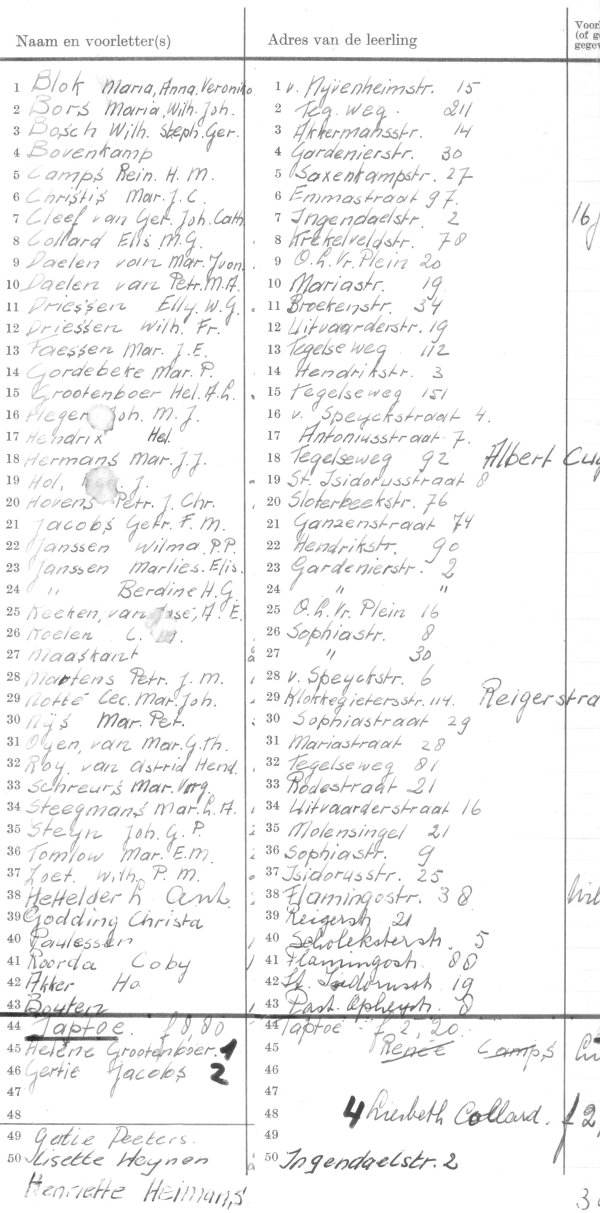 Naam en voorletter(s) Adres van de leerling
1 Blok Maria, Anna, Veronika 1 v. Nyvenheimstr. 15
2 Bors Maria, Wilh. Joh. 2 Teg. weg. 211
3 Bosch Wilh. Steph. Ger. 3 Akkermansstr. 14
4 Bovenkamp 4 Gardenierstr. 30
5 Camps Rein. H. M. 5 Saxenkampstr. 27
6 Christis Mar. J. C. 6 Emmastraat 97.
7 Cleef van Ger. Joh. Cath. 7 Ingendaelstr. 2
8 Collard Elis M.G. 8 Krekelveldstr. 78
9 Daelen van Mar. Yvon. 9 O.L.Vr. Plein 20
10 Daelen van Petr. M.A. 10 Mariastr. 19
11 Driessen Elly. W.G. 11 Broekenstr. 34
12 Driessen Wilh. Fr. 12 Uitvaarderstr. 19
13 Faessen Mar. J.E. 13 Tegelse weg 112
14 Gordebeke Mar. P. 14 Hendrikstr. 3
15 Grootenboer Hel. A.L. 15 Tegelseweg 151
16 Heger Joh. M. J. 16 v. Speyckstraat 4.
17 Hendrix Hel. 17 Antoniusstraat 7.
18 Hermans Mar. J.J. 18 Tegelseweg 92 Albert Cuy
19 Hol, J. 19 St. Isidorusstraat 8
20 Hovens Petr. J. Chr. 20 Sloterbeekstr. 76
21 Jacobs Getr. F. M. 21 Ganzenstraat 74
22 Janssen Wilma. P.P. 22 Hendrikstr. 90
23 Janssen Marlies. Elis. 23 Gardenierstr. 2
24 " Berdine H.G. 24 " "
25 Keeken, van José, A. E. 25 O.L.Vr. Plein 16
26 Koelen C. 26 Sophiastr. 8
27 Maaskant 27 " 30
28 Martens Petr. J. M. 28 v. Speyckstr. 6
29 Notté Cec. Mar. Joh. 29 Klokkegietersstr. 114. Reigerstra
30 Nijs Mar. Pet. 30 Sophiastraat 29
31 Oyen, van Mar. G. Th. 31 Mariastraat 28
32 Roy, van Astrid Hend. 32 Tegelseweg 81
33 Schreurs Mar. 33 Rodestraat 21
34 Steegmans Mar. L. A. 34 Uitvaarderstraat 16
35 Steyn Joh. G. P. 35 Molensingel 21
36 Tomlow Mar. E.M. 36 Sophiastr. 9
37 Zoet. With. P. M. 37 Isidorusstr. 25
38 Hettelder h Ant. 38 Flamingostr. 38
39 Godding Christa 39 Reigerstr. 21
40 Paulessen 40 Scholeksterstr. 5
41 Roorda Coby 41 Flamingostr. 88
42 Akker Ho 42 St. Isidorusstr. 19
43 Bouten 43 Past. 8
44 Taptoe. f 8,80 44 Taptoe f 2,20.
45 Helène Grootenboer. 1 45 Renée Camps
46 Gertie Jacobs 2 46
47 47
48 48 4 Liesbeth Collard. f 2,
49 Gertie Peeters. 49
50 Lisette Heynen 50 Ingendaelstr. 2
Henriëtte Heimans